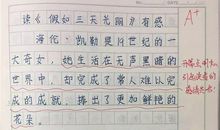 读《假如三天光明》有感
海伦·凯勒是19世纪的一
大奇女，她生活在无声黑暗的
世界中，却完成了常人难以完
成的成就，捧出了更加鲜艳的
花朵。
A+
开篇点明
引起读者的